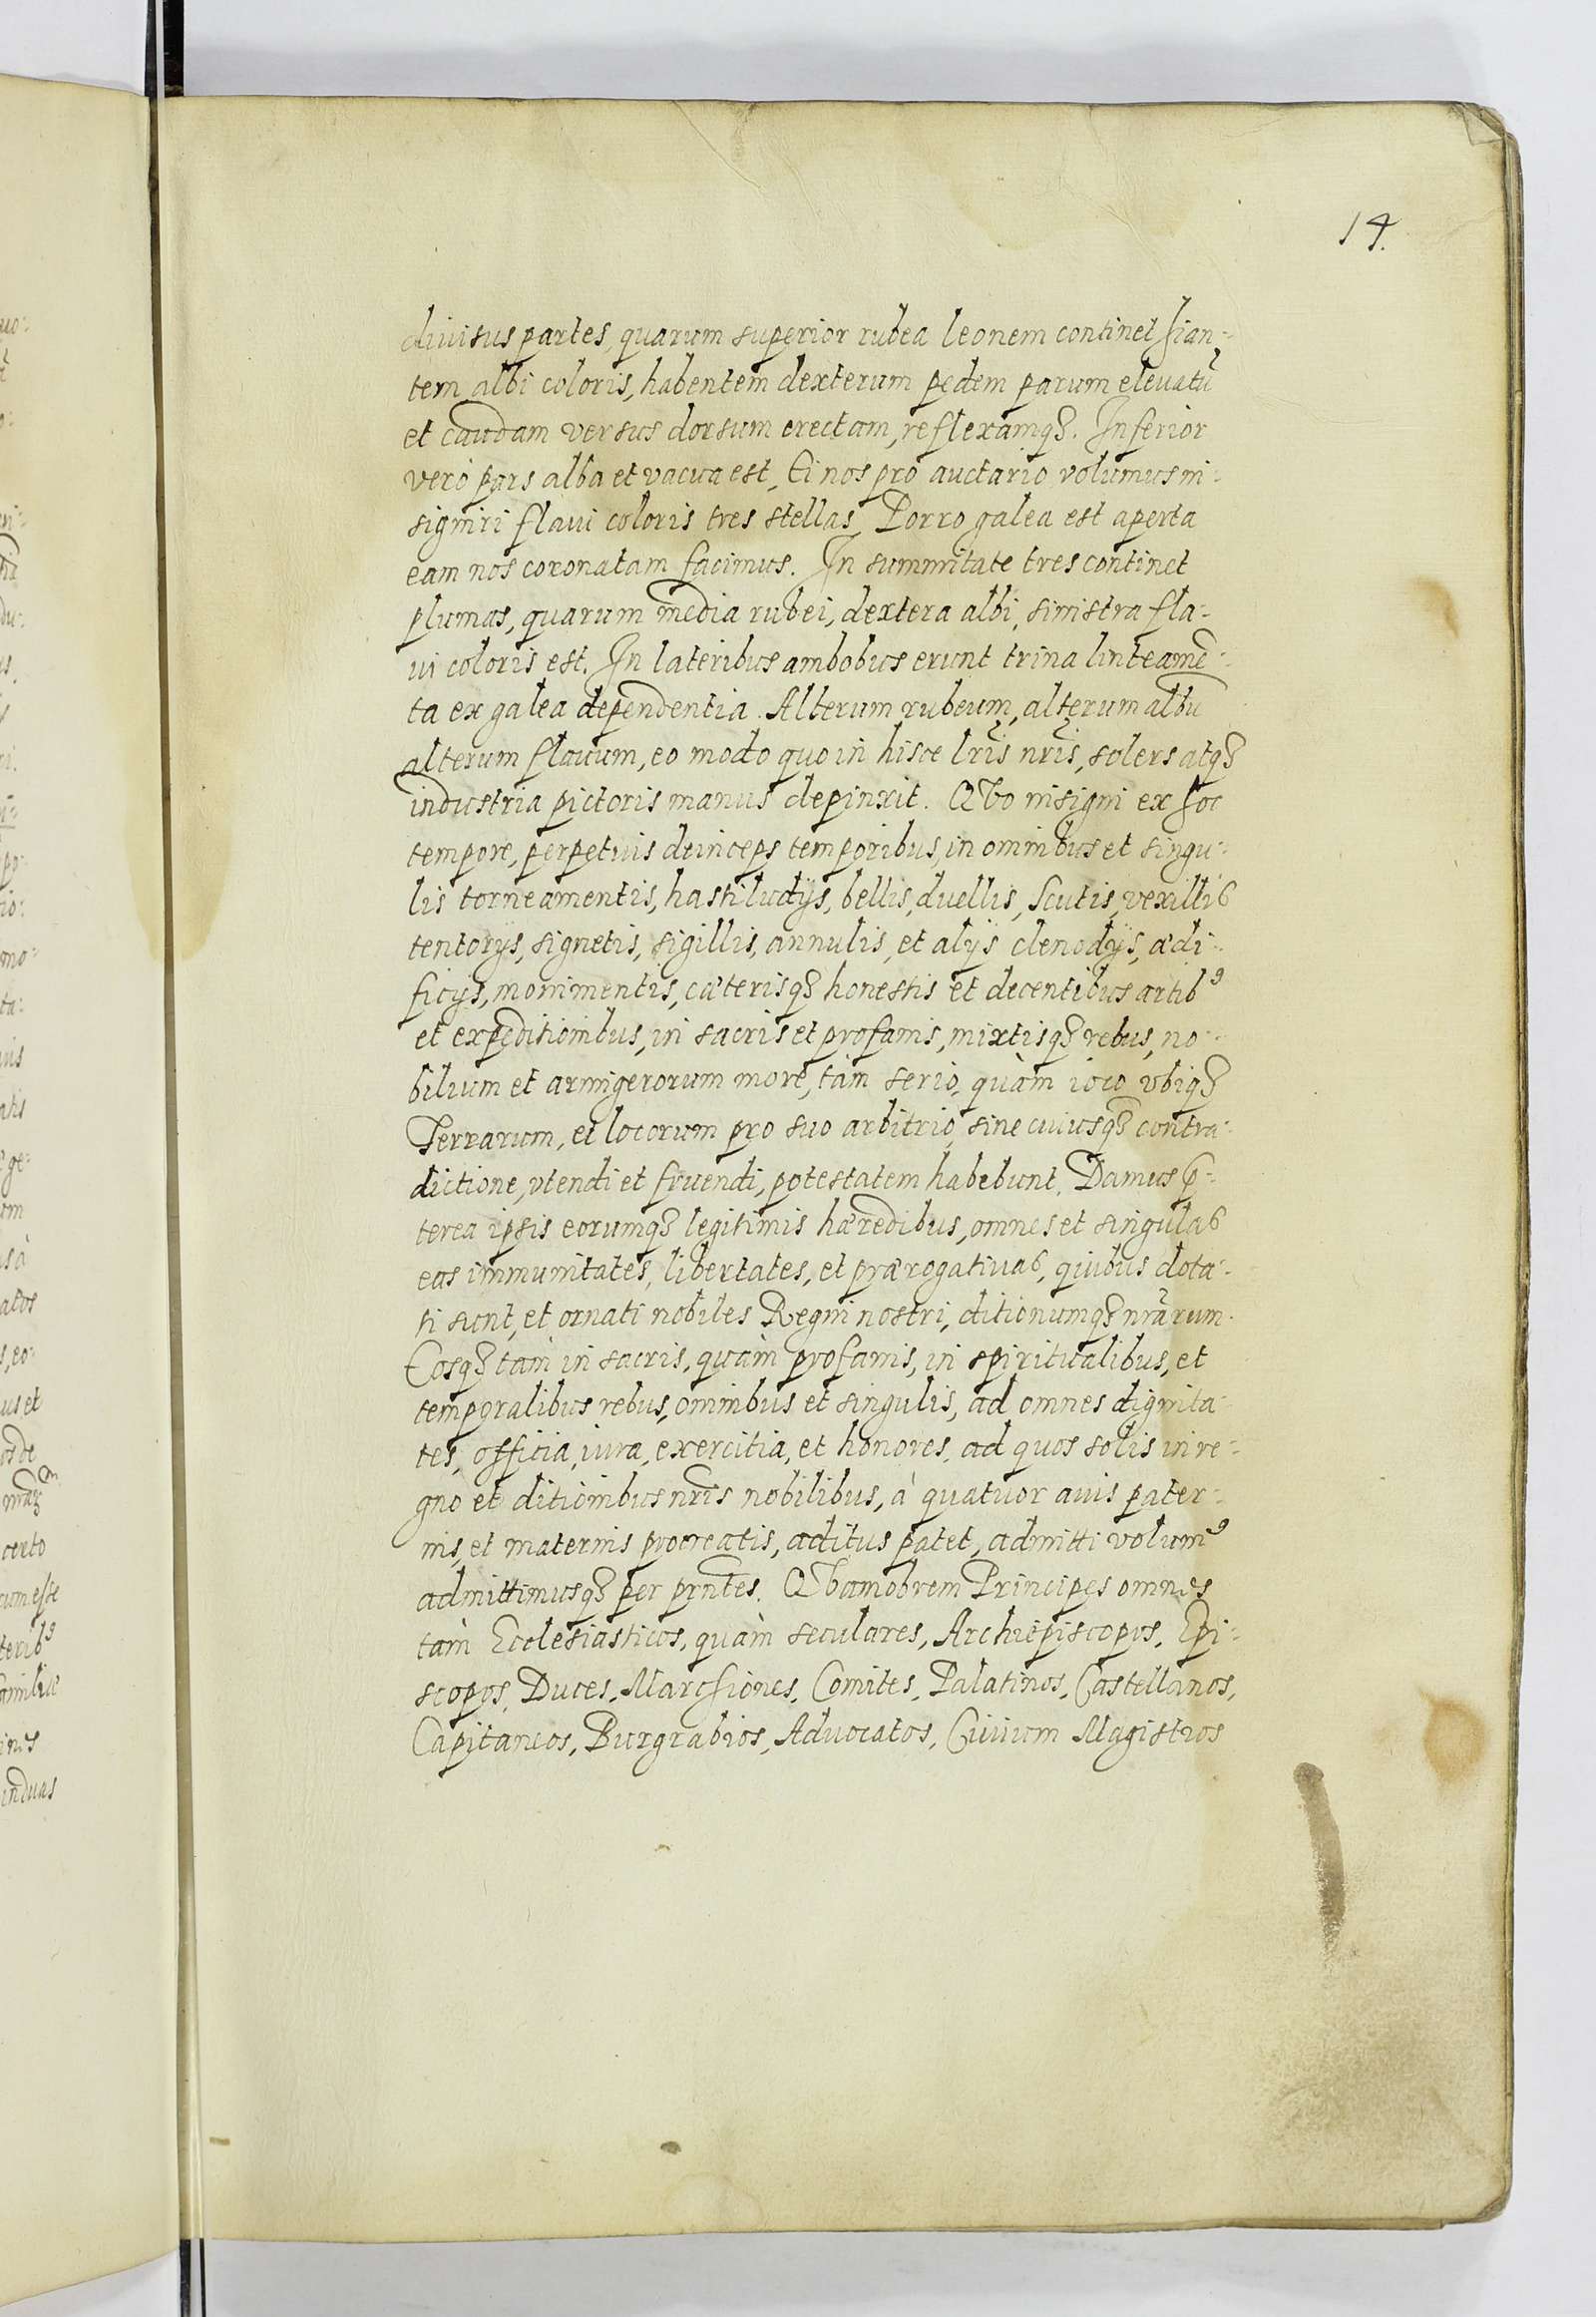 14.
diuisus partes, quarum superior rubea leonem continet hian-
tem albi coloris, habentem dexterum pedem parum eleuatū
et caudam versus dorsum erectam, reflexamqꝫ. Inferior
verò pars alba et vacua est, Ei nos pro auctario volumus in-
signiri flaui coloris tres stellas, Porro galea est aperta
eam nos coronatam facimus. In summitate tres continet
plumas, quarum media rubei, dextera albi, sinistra fla-
ui coloris est. In lateribus ambobus erunt trina linteamē-
ta ex galea dependentia. Alterum rubeum, alterum albū
alterum flauum, eo modo quo in hisce lr̃is nr̃is, solers atqꝫ
industria pictoris manus depinxit. QVo insigni ex hoc
tempore, perpetuis deinceps temporibus, in omnibus et singu-
lis torneamentis, hastiludijs, bellis, duellis, Scutis, vexillis
tentorijs, signetis, sigillis, annulis, et alijs clenodijs, ædi-
ficijs, monimentis, cæterisqꝫ honestis et decentibus artibꝰ
et expeditionibus, in sacris et profanis, mixtisqꝫ rebus, no-
bilium et armigerorum more, tàm serio, quàm ioco vbiqꝫ
Terrarum, et locorum pro suo arbitrio, sine cuiusqꝫ contra-
dictione, vtendi et fruendi, potestatem habebunt. Damus p̃-
terea ipsis eorumqꝫ legitimis hæredibus, omnes et singulas
eas immunitates, libertates, et prærogatiuas, quibus dota-
ti sunt, et ornati nobiles Regni nostri, ditionumqꝫ nr̃arum.
Eosqꝫ tàm in sacris, quàm profanis, in spiritualibus, et
temporalibus rebus, omnibus et singulis, ad omnes dignita-
tes, officia, iura, exercitia, et honores, ad quos solis in re-
gno et ditionibus nr̃is nobilibus, à quatuor auis pater-
nis, et maternis procreatis, aditus patet, admitti volumꝰ
admittimusqꝫ per prñtes. QVamobrem Principes omnes
tàm Ecclesiasticos, quàm seculares, Archiepiscopos, Epi-
scopos, Duces, Marchiones, Comites, Palatinos, Castellanos,
Capitaneos, Burgrabios, Aduocatos, Ciuium Magistros